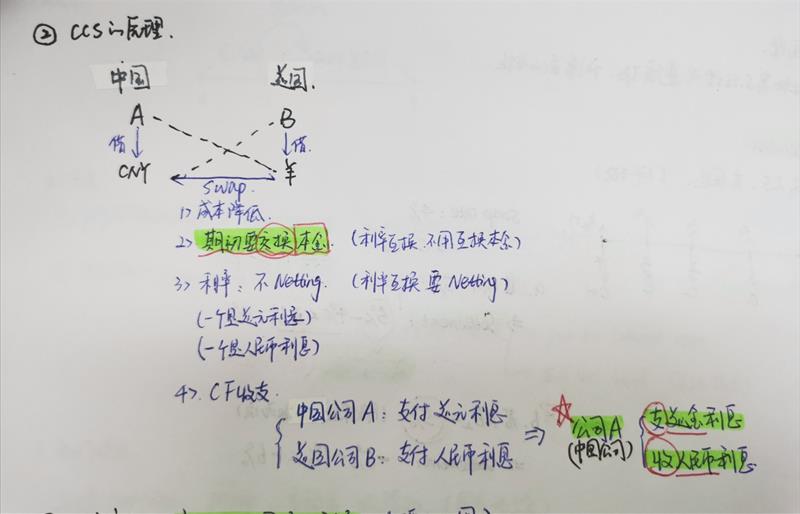 ② CCS的原理.
中国 美国.
A B
借 借.
CNY ¥
swap.
1> 成本降低.
2> 期初要交换本金. (利率互换 不用互换本金)
3> 利率: 不Netting. (利率互换 要 Netting)
(一个是美元利息)
(一个是人民币利息)
4> CF收支.
中国公司A: 支付美元利息
美国公司B: 支付人民币利息
⇒ ☆ 公司A (中国公司)
支美金利息
收人民币利息